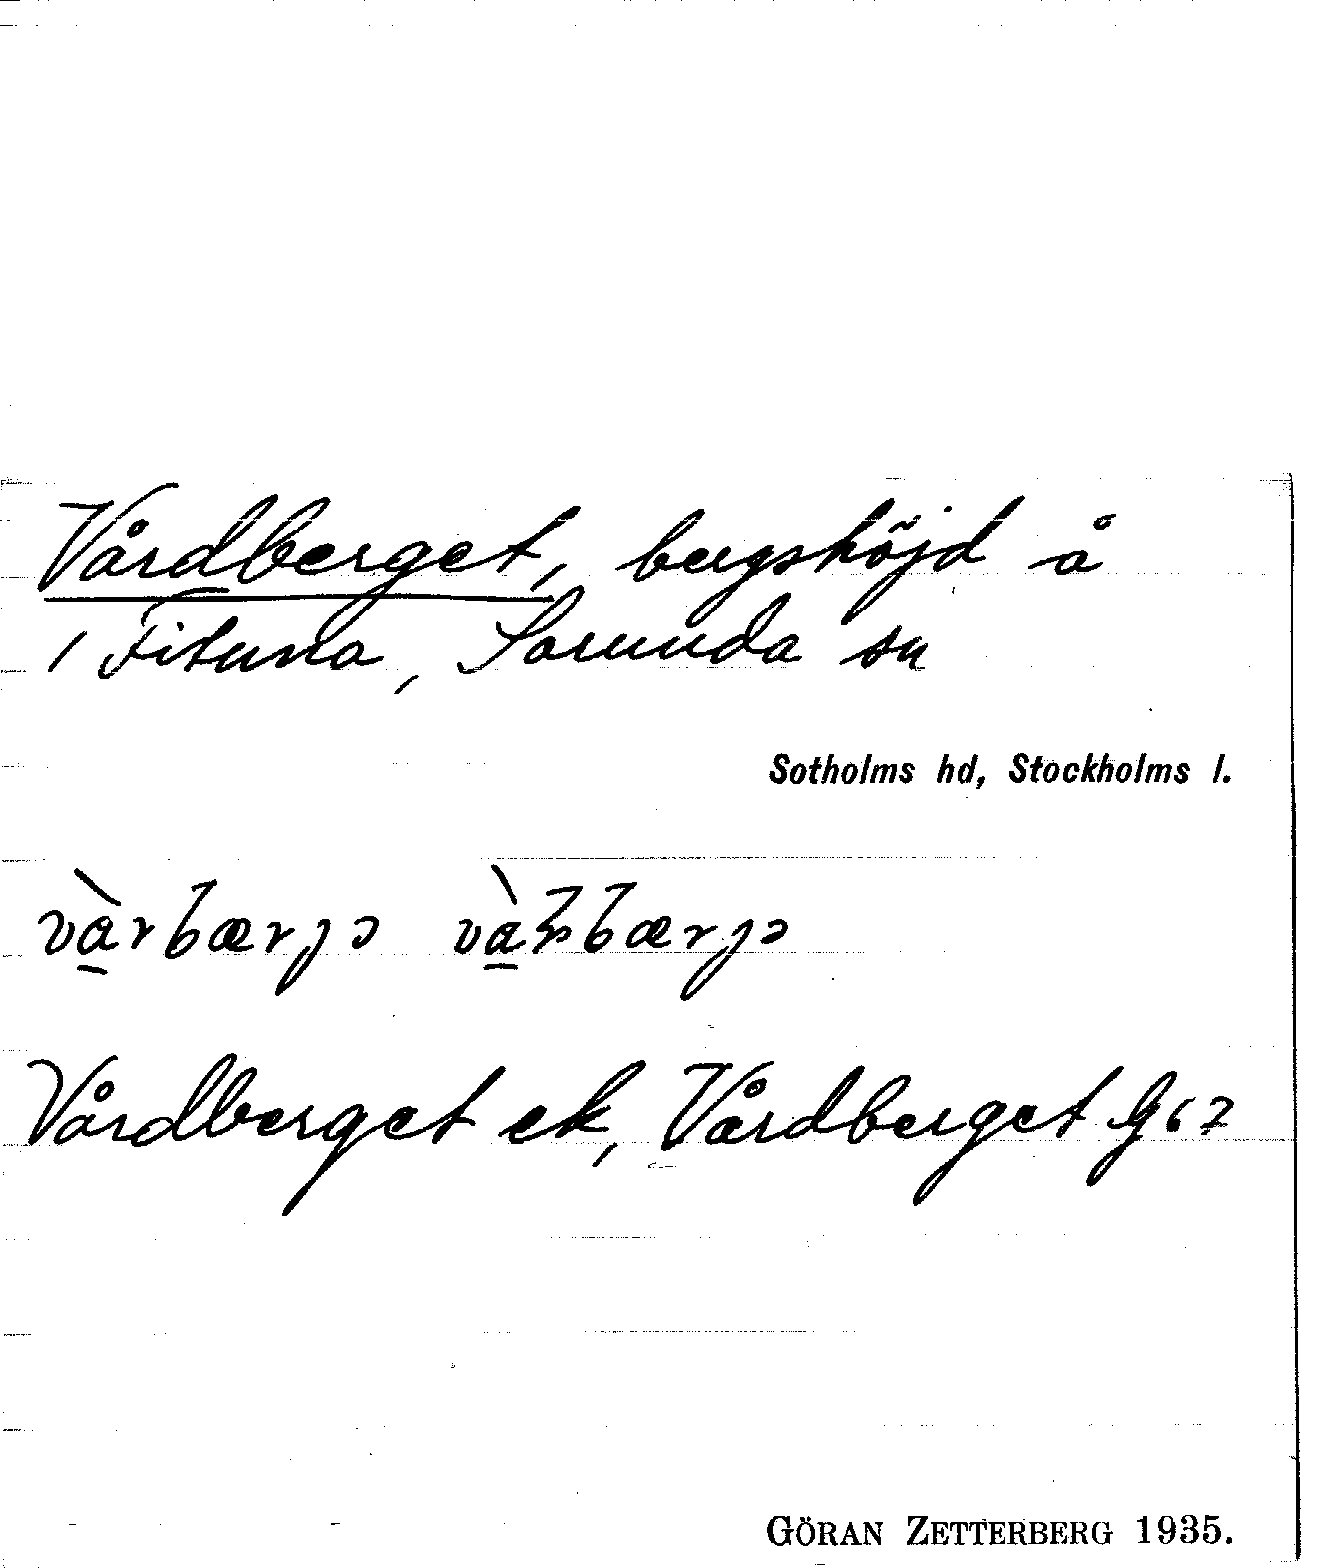 Vårdberget, bergshöjd å
1 Fituna, Sorunda sn
Sotholms hd, Stockholms l.
Vårdberget ek, Vårdberget
GÖRAN ZETTERBERG 1935.